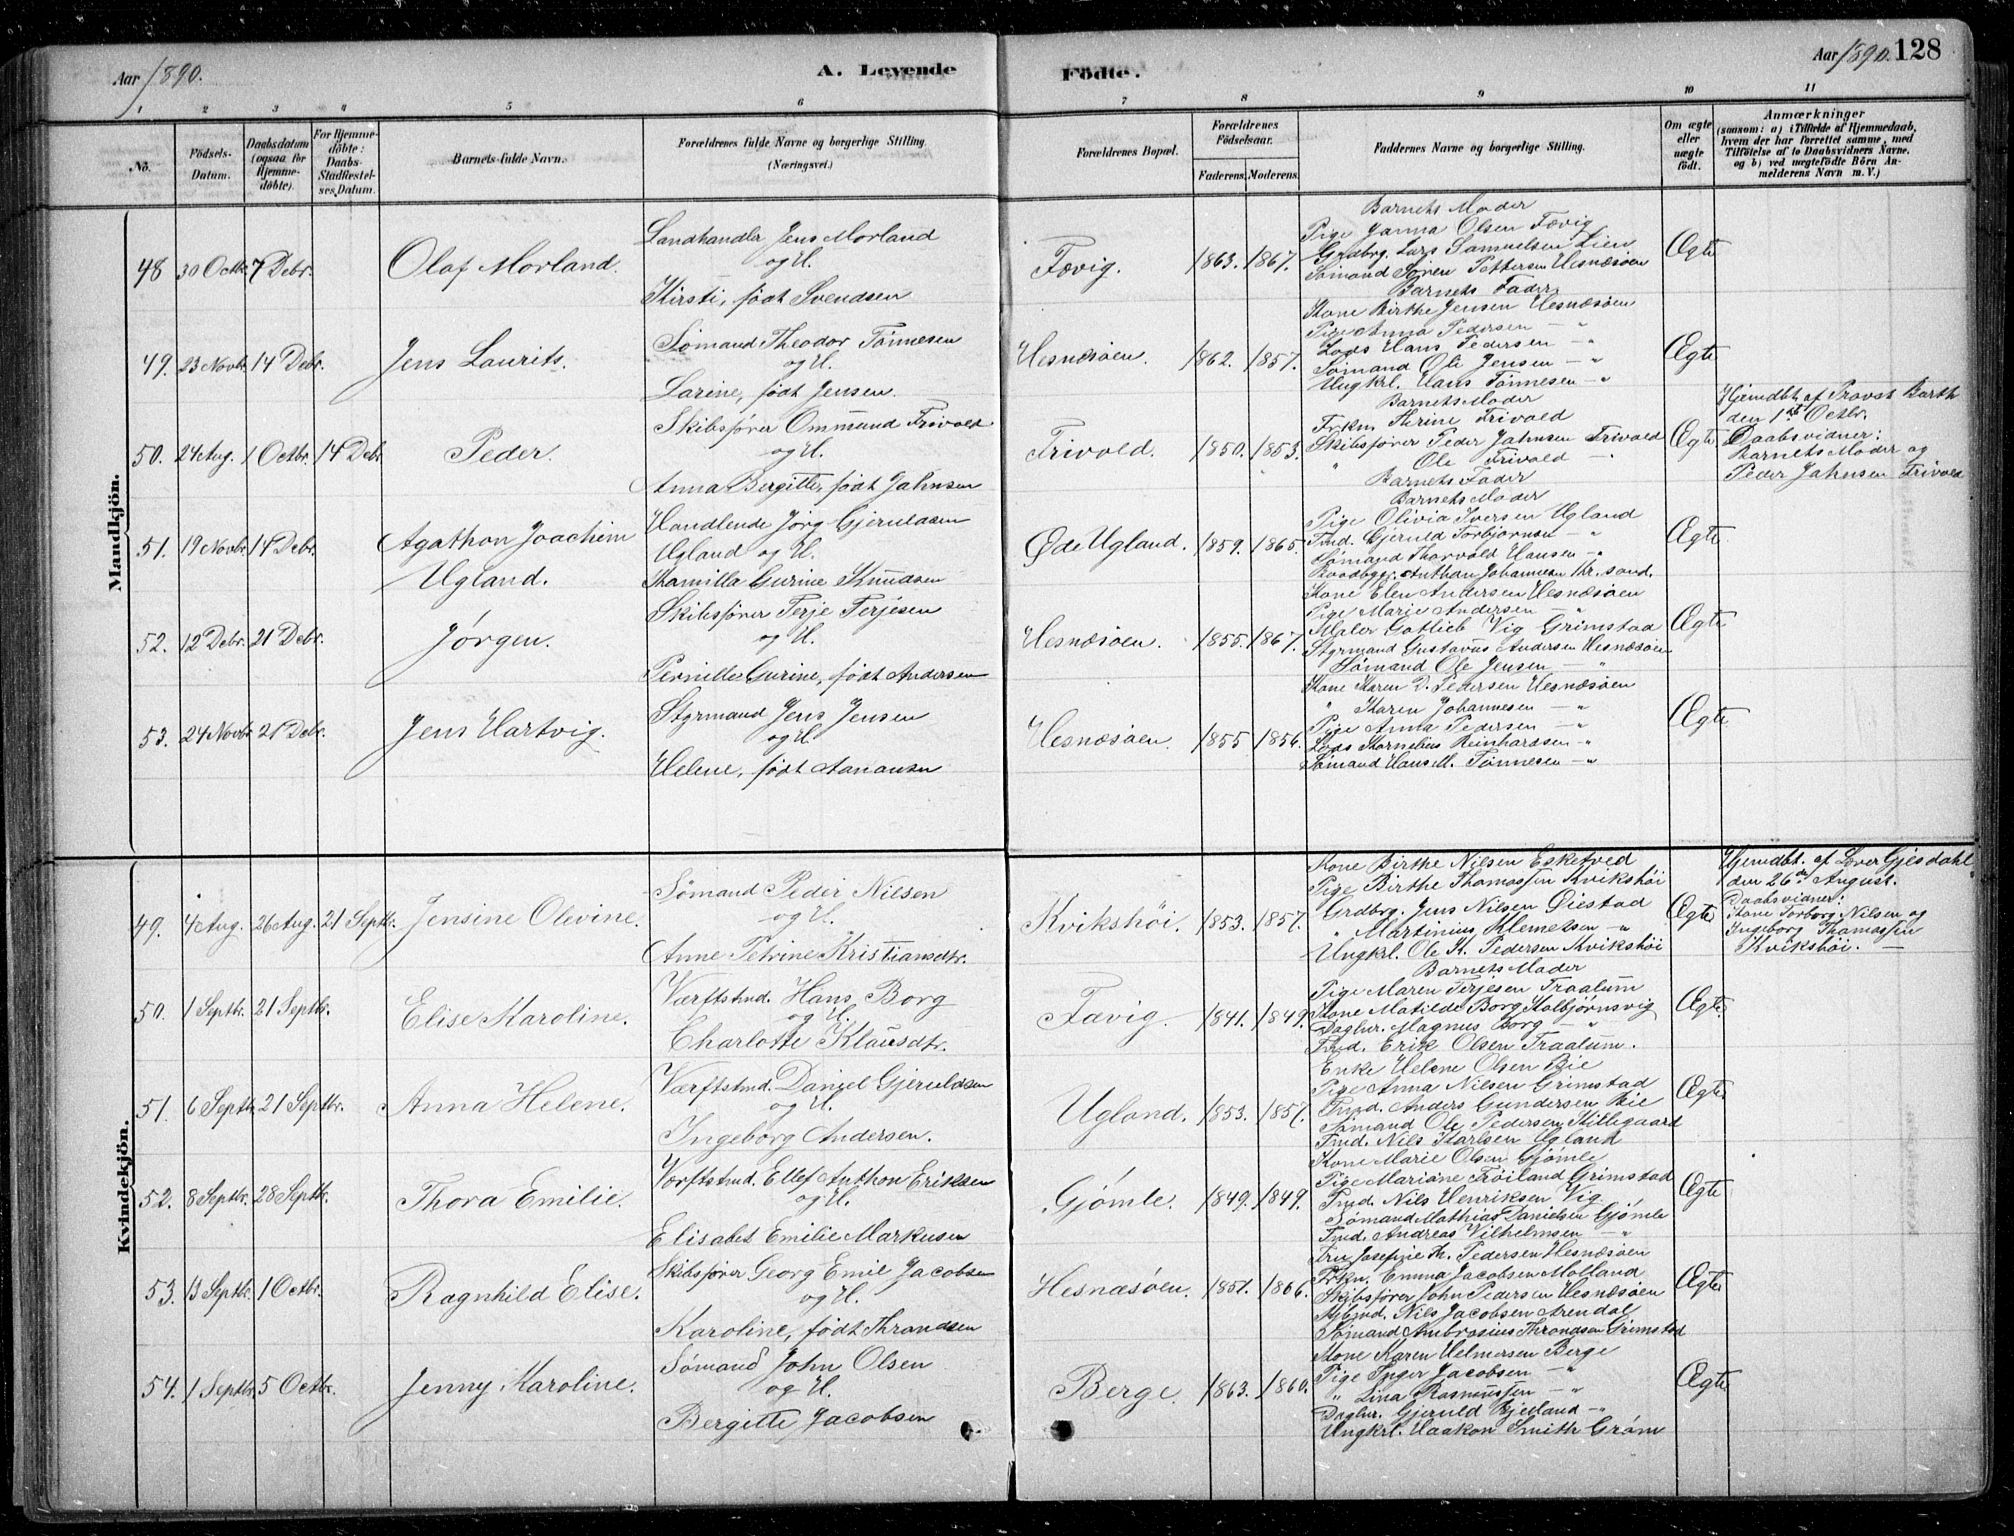 Aar 1890.
A. Levende
Födte.
Aar 1890. 128
1 2 3 4 5 6 7 8 9 10 11
No.
Födsels-Datum.
Daabsdatum (ogsaa for Hjemmedöbte).
For Hjemmedöbte: Daabs-Stadfæstelses Datum.
Barnets fulde Navn.
Forældrenes fulde Navne og borgerlige Stilling (Næringsvei.)
Forældrenes Bopæl.
Forældrenes Födselsaar.
Faderens. Moderens.
Faddernes Navne og borgerlige Stilling.
Om ægte eller uægte födt.
Anmærkninger
(saasom: a) i Tilfælde af Hjemmedaab, hvem der har forrettet samme, med Tilföielse af to Daabsvidners Navne, og b) ved uægtefödte Börn Anmelderens Navn m. V.)
Mandkjön.
48 30 Octbr. 7 Debr. Olaf Morland.
Landhandler Jens Morland
og H.
Kirsti, født Svendsen
Fævig. 1863. 1867.
Barnets Moder
Pige Janna Olsen Fævig
Grdbrg. Lars Samuelsen Lien
Sømand Søren Pettersen Hesnæsøen
Barnets Fader
Ægte
49. 23 Novbr. 14 Debr. Jens Laurits.
Sømand Theodor Tønnesen
og H.
Larine, født Jensen.
Hesnæsøen. 1862. 1857.
Kone Birthe Jensen Hesnæsøen
Pige Anna Pedersen — "
Lods Hans Pedersen — "
Sømand Ole Jensen — "
Ungkrl. Hans Tønnesen — "
Ægte
50. 24 Aug. 1 Octbr. 14 Debr. Peder.
Skibsfører Ommund Frivold
og H.
Anna Bergitte, født Jahnsen
Frivold. 1850. 1853.
Barnets Moder
Frkn. Thrine Frivold
Skibsfører Peder Jahnsen Frivold
" Ole Frivold — "
Barnets Fader
Ægte
Hjemdbt. af Provst Barth
den 1st Octbr.
Daabsvidner:
Barnets Moder og
Peder Jahnsen Frivold
51. 19 Novbr. 14 Debr. Agathon Joachim
Ugland.
Handlende Jørg Gjeruldsen
Ugland og H.
Kamilla Gurine Knudsen
Øde Ugland. 1859. 1865.
Barnets Moder
Pige Olivia Iversen Ugland
Tmd. Gjeruld Torbjørnsen — "
Sømand Thorvald Hansen — "
Baadbygg. Anthon Johannesen Kr.sand.
Ægte
52. 12 Debr. 21 Debr. Jørgen.
Skibsfører Terje Terjesen
og H.
Pernille Gurine, født Andersen
Hesnæsøen. 1855. 1867.
Kone Elen Andersen Hesnæsøen
Pige Marie Andersen — "
Maler Gotlieb Vig Grimstad
Styrmand Gustavus Andersen Hesnæsøen
Sømand Ole Jensen — "
Ægte
53. 24 Novbr. 21 Debr. Jens Hartvig.
Styrmand Jens Jensen
og H.
Helene, født Aanansen
Hesnæsøen. 1855 1856.
Kone Karen D. Pedersen Hesnæsøen
" Karen Johannesen — "
Pige Anna Pedersen — "
Lods Kornelius Reinhardsen — "
Sømand Hans M. Tønnesen — "
Ægte
Kvindekjön.
49. 4 Aug. 26 Aug. 21 Septbr. Jensine Olevine.
Sømand Peder Nilsen
og H.
Anne Petrine Kristiansdtr.
Kvikshøi. 1853. 1857.
Kone Birthe Nilsen Esketved
Pige Birthe Thomassen Kvikshøi
Grdbrg. Jens Nilsen Øiestad
" Martinius Klemetsen — "
Ungkrl. Ole K. Pedersen Kvikshøi
Ægte
Hjemdbt. af Lærer Gjesdahl
den 26de August.
Daabsvidner:
Kone Torborg Nilsen og
Ingeborg Thomassen
Kvikshøi. —
50. 1 Septbr. 21 Septbr. Elise Karoline.
Værftstmd. Hans Borg
og H.
Charlotte Klausdtr.
Fævig. 1841. 1849.
Barnets Moder
Pige Maren Terjesen Traalum
Kone Matilde Borg Kolbjørnsvig
Daglnr. Magnus Borg — "
Tmd. Erik Olsen Traalum.
Ægte
51. 6 Septbr. 21 Septbr. Anna Helene.
Værftstmd. Daniel Gjeruldsen
og H.
Ingeborg Andersen.
Ugland. 1853. 1857.
Enke Helene Olsen Bie
Pige Anna Nilsen Grimstad
Tmd. Anders Gundersen Bie
Sømand Ole Pedersen Kittegaard
Tmd. Nils Karlsen Ugland
Ægte
52. 8 Septbr. 28 Septbr. Thora Emilie.
Værftstmd. Ellef Anthon Eriksen
og H.
Elisabet Emilie Markusen
Gjømle. 1849. 1849.
Kone Marie Olsen Gjømle
Pige Mariane Frøiland Grimstad
Tmd. Nils Henriksen Vig
Sømand Mathias Danielsen Gjømle
Tmd. Andreas Vilhelmsen — "
Ægte
53. 13 Septbr. 1 Octbr. Ragnhild Elise.
Skibsfører Georg Emil Jacobsen
og H.
Karoline, født Thrandsen
Hesnæsøen. 1851. 1866.
Fru Josefine Th. Pedersen Hesnæsøen
Frkn. Emma Jacobsen Molland
Skibsfører John Pedersen Hesnæsøen
Nils Jacobsen Arendal
Sømand Ambrosius Throndsen Grimstad
Ægte
54. 1 Septbr. 5 Octbr. Jenny Karoline.
Sømand John Olsen
og H.
Bergitte Jacobsen
Berge. 1863. 1860.
Kone Karen Helmersen Berge
Pige Inger Jacobsen — "
" Lina Rasmussen — "
Daglnr. Gjeruld Bjelland — "
Ungkrl. Haakon Smith Grøm
Ægte